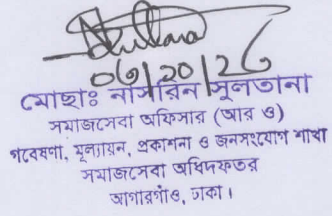 ০৬/১০/২৫
মোছাঃ নাসরিন সুলতানা
সমাজসেবা অফিসার (আর ও)
গবেষণা, মূল্যায়ন, প্রকাশনা ও জনসংযোগ শাখা
সমাজসেবা অধিদফতর
আগারগাঁও, ঢাকা।